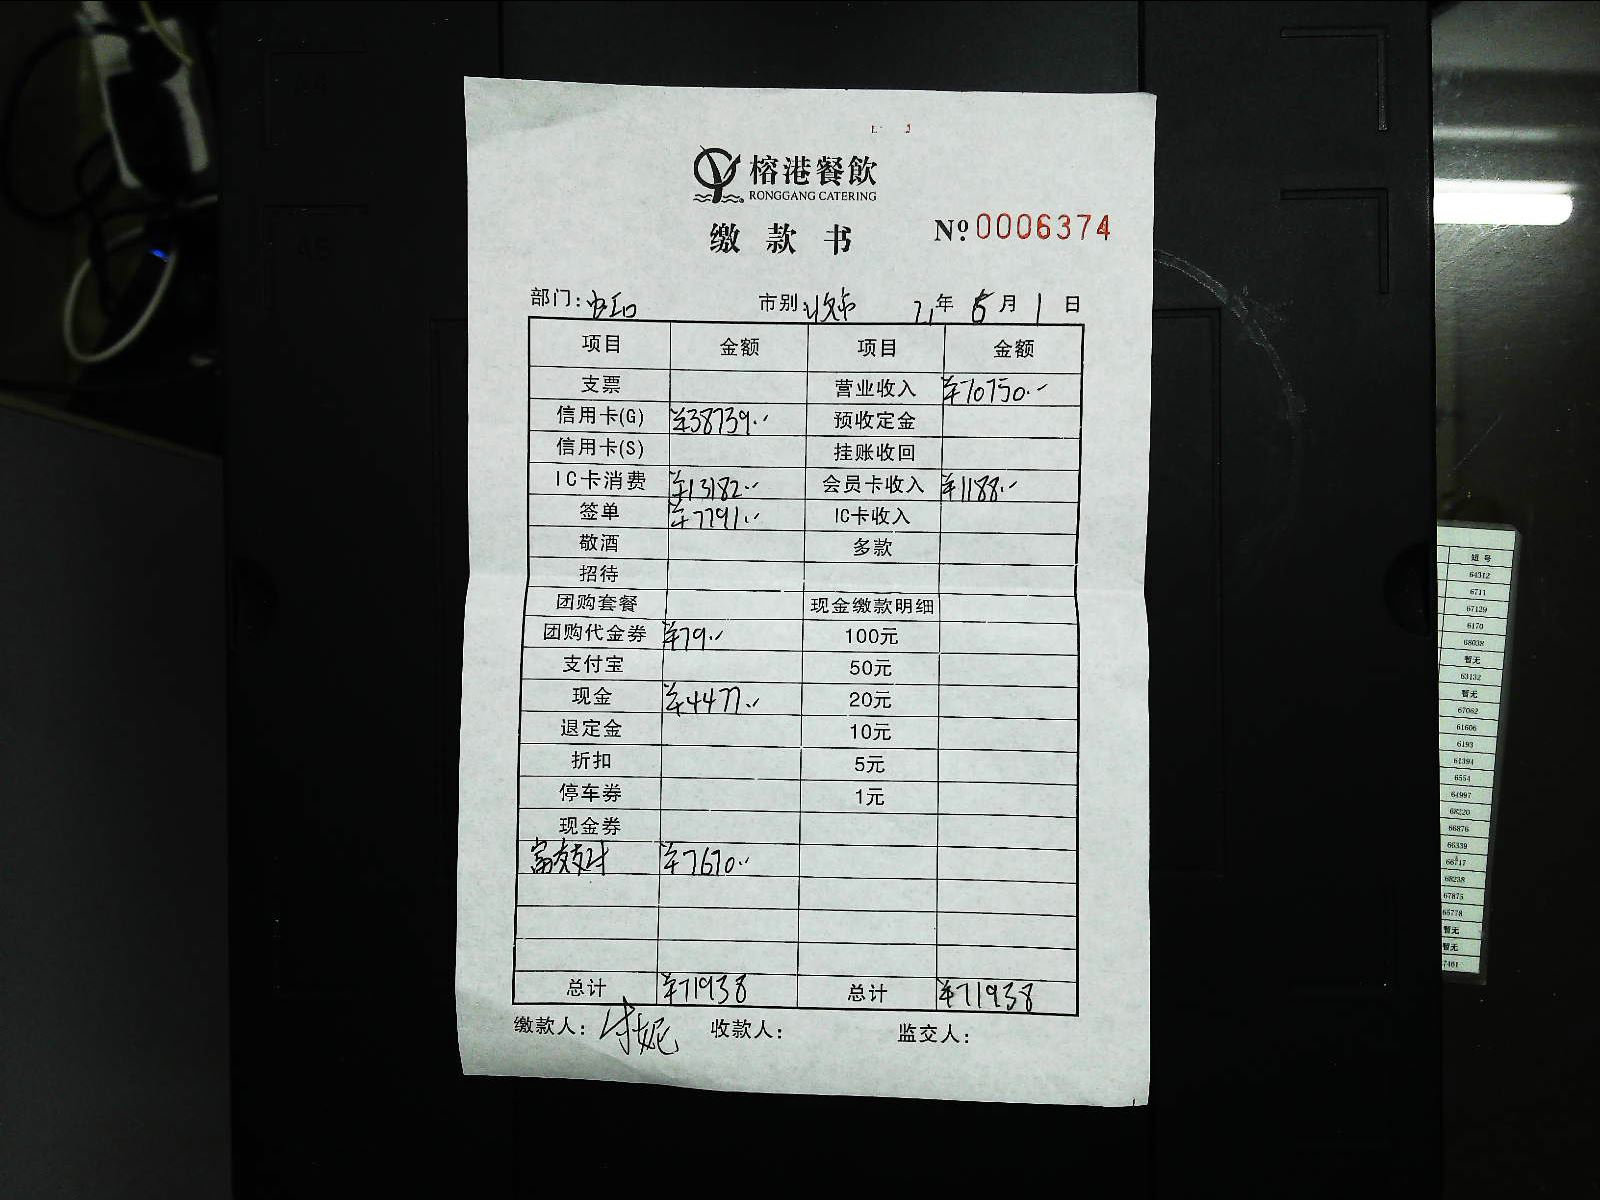 榕港餐飲
RONGGANG CATERING
缴款书 № 0006374
部门: 市别: 21年5月1日
项目 金额 项目 金额
支票 营业收入 ¥70750.-
信用卡(G) ¥38739.- 预收定金
信用卡(S) 挂账收回
IC卡消费 ¥13182.- 会员卡收入 ¥1188.-
签单 ¥7791.- IC卡收入
敬酒 多款
招待
团购套餐 现金缴款明细
团购代金券 ¥79.- 100元
支付宝 50元
现金 ¥4477.- 20元
退定金 10元
折扣 5元
停车券 1元
现金券
富友支付 ¥7670.-
总计 ¥71938 总计 ¥71938
缴款人: 收款人: 监交人:
短号
64312
6711
67129
6170
68038
暂无
63132
暂无
67062
61606
6193
61394
6554
64997
68220
66876
66339
66717
68238
67875
65778
暂无
暂无
7461